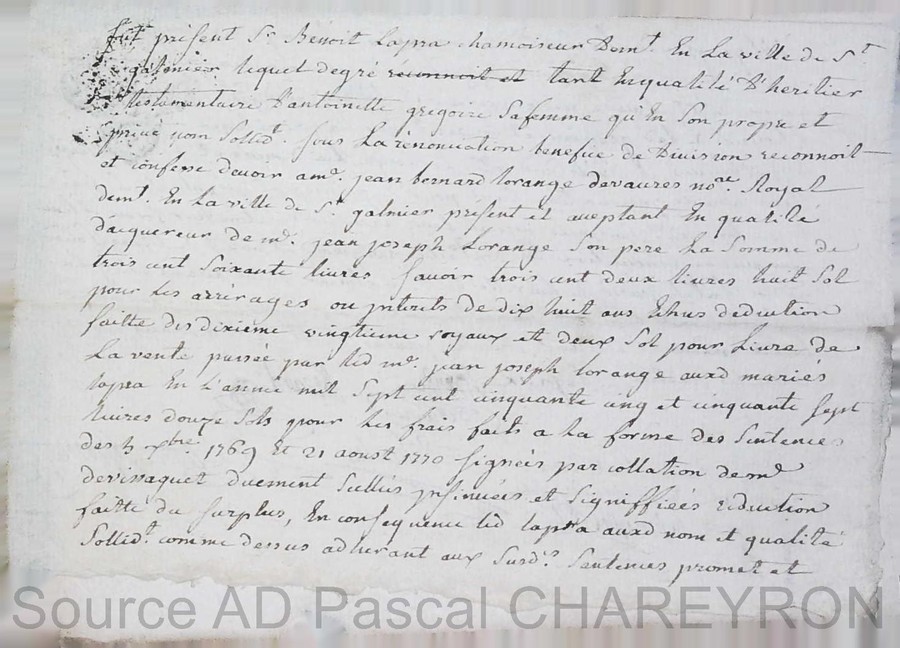 fut présent Sr. Benoit Lapra chamoiseur Demt. En La ville de St.
galmier lequel de gré reconnoit et tant En qualité D'heritier
testamentaire D'antoinette gregoire Sa femme qu'En Son propre et
privé nom Sollidt. sous La rénonciation benefice de Division reconnoit
et confesse devoir a mr. jean bernard lorange devaures nore. Royal
demt. En La ville de St. galmier présent et aceptant En qualité
d'acquereur de mr. jean joseph Lorange Son pere La Somme de
trois cent Soixante livres savoir trois cent deux livres huit Sol
pour les arrérages ou jnterets de dix huit ans Echus deduction
faitte des dixieme vingtieme royaux et deux Sol pour Livre de
La vente passée par led mr. jean joseph lorange auxd mariés
lapra En L'année mil Sept cent cinquante cinq et cinquante Sept
livres douze Sols pour les frais faits a La forme des Sentences
des 4 xbre. 1769 Et 21 aoust 1770 Signeés par collation de mr
devissaguet duement Scellés jnsinuées et Signiffieés réduction
faitte du Surplus, En consequence led lapra auxd nom et qualité
Sollidt. comme dessus adherant aux Susds. Sentences promet et
Source AD Pascal CHAREYRON